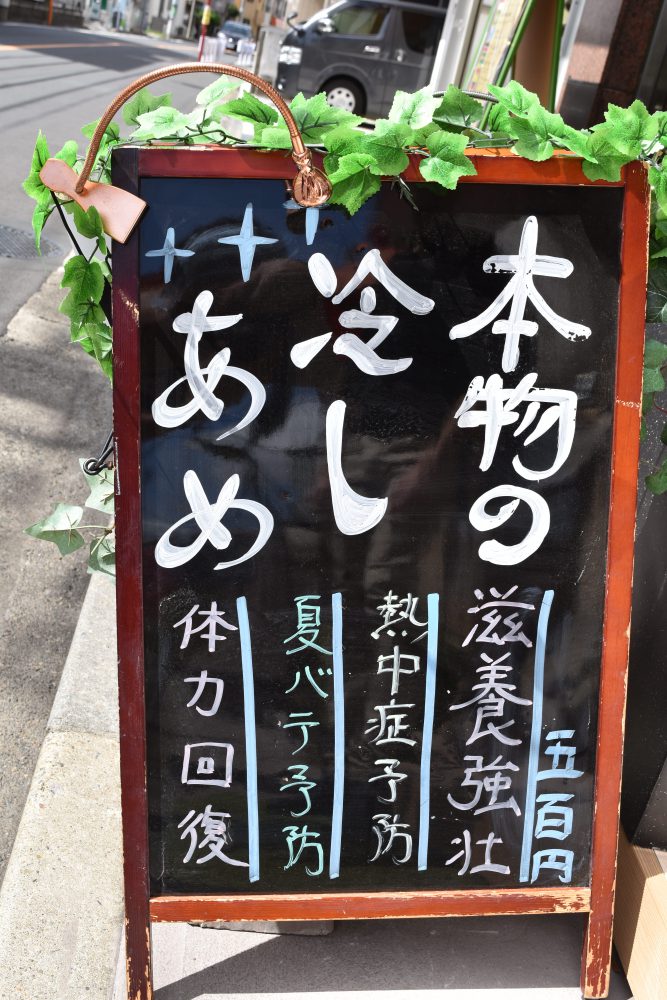 本物の
冷し
あめ
五百円
滋養強壮
熱中症予防
夏バテ予防
体力回復